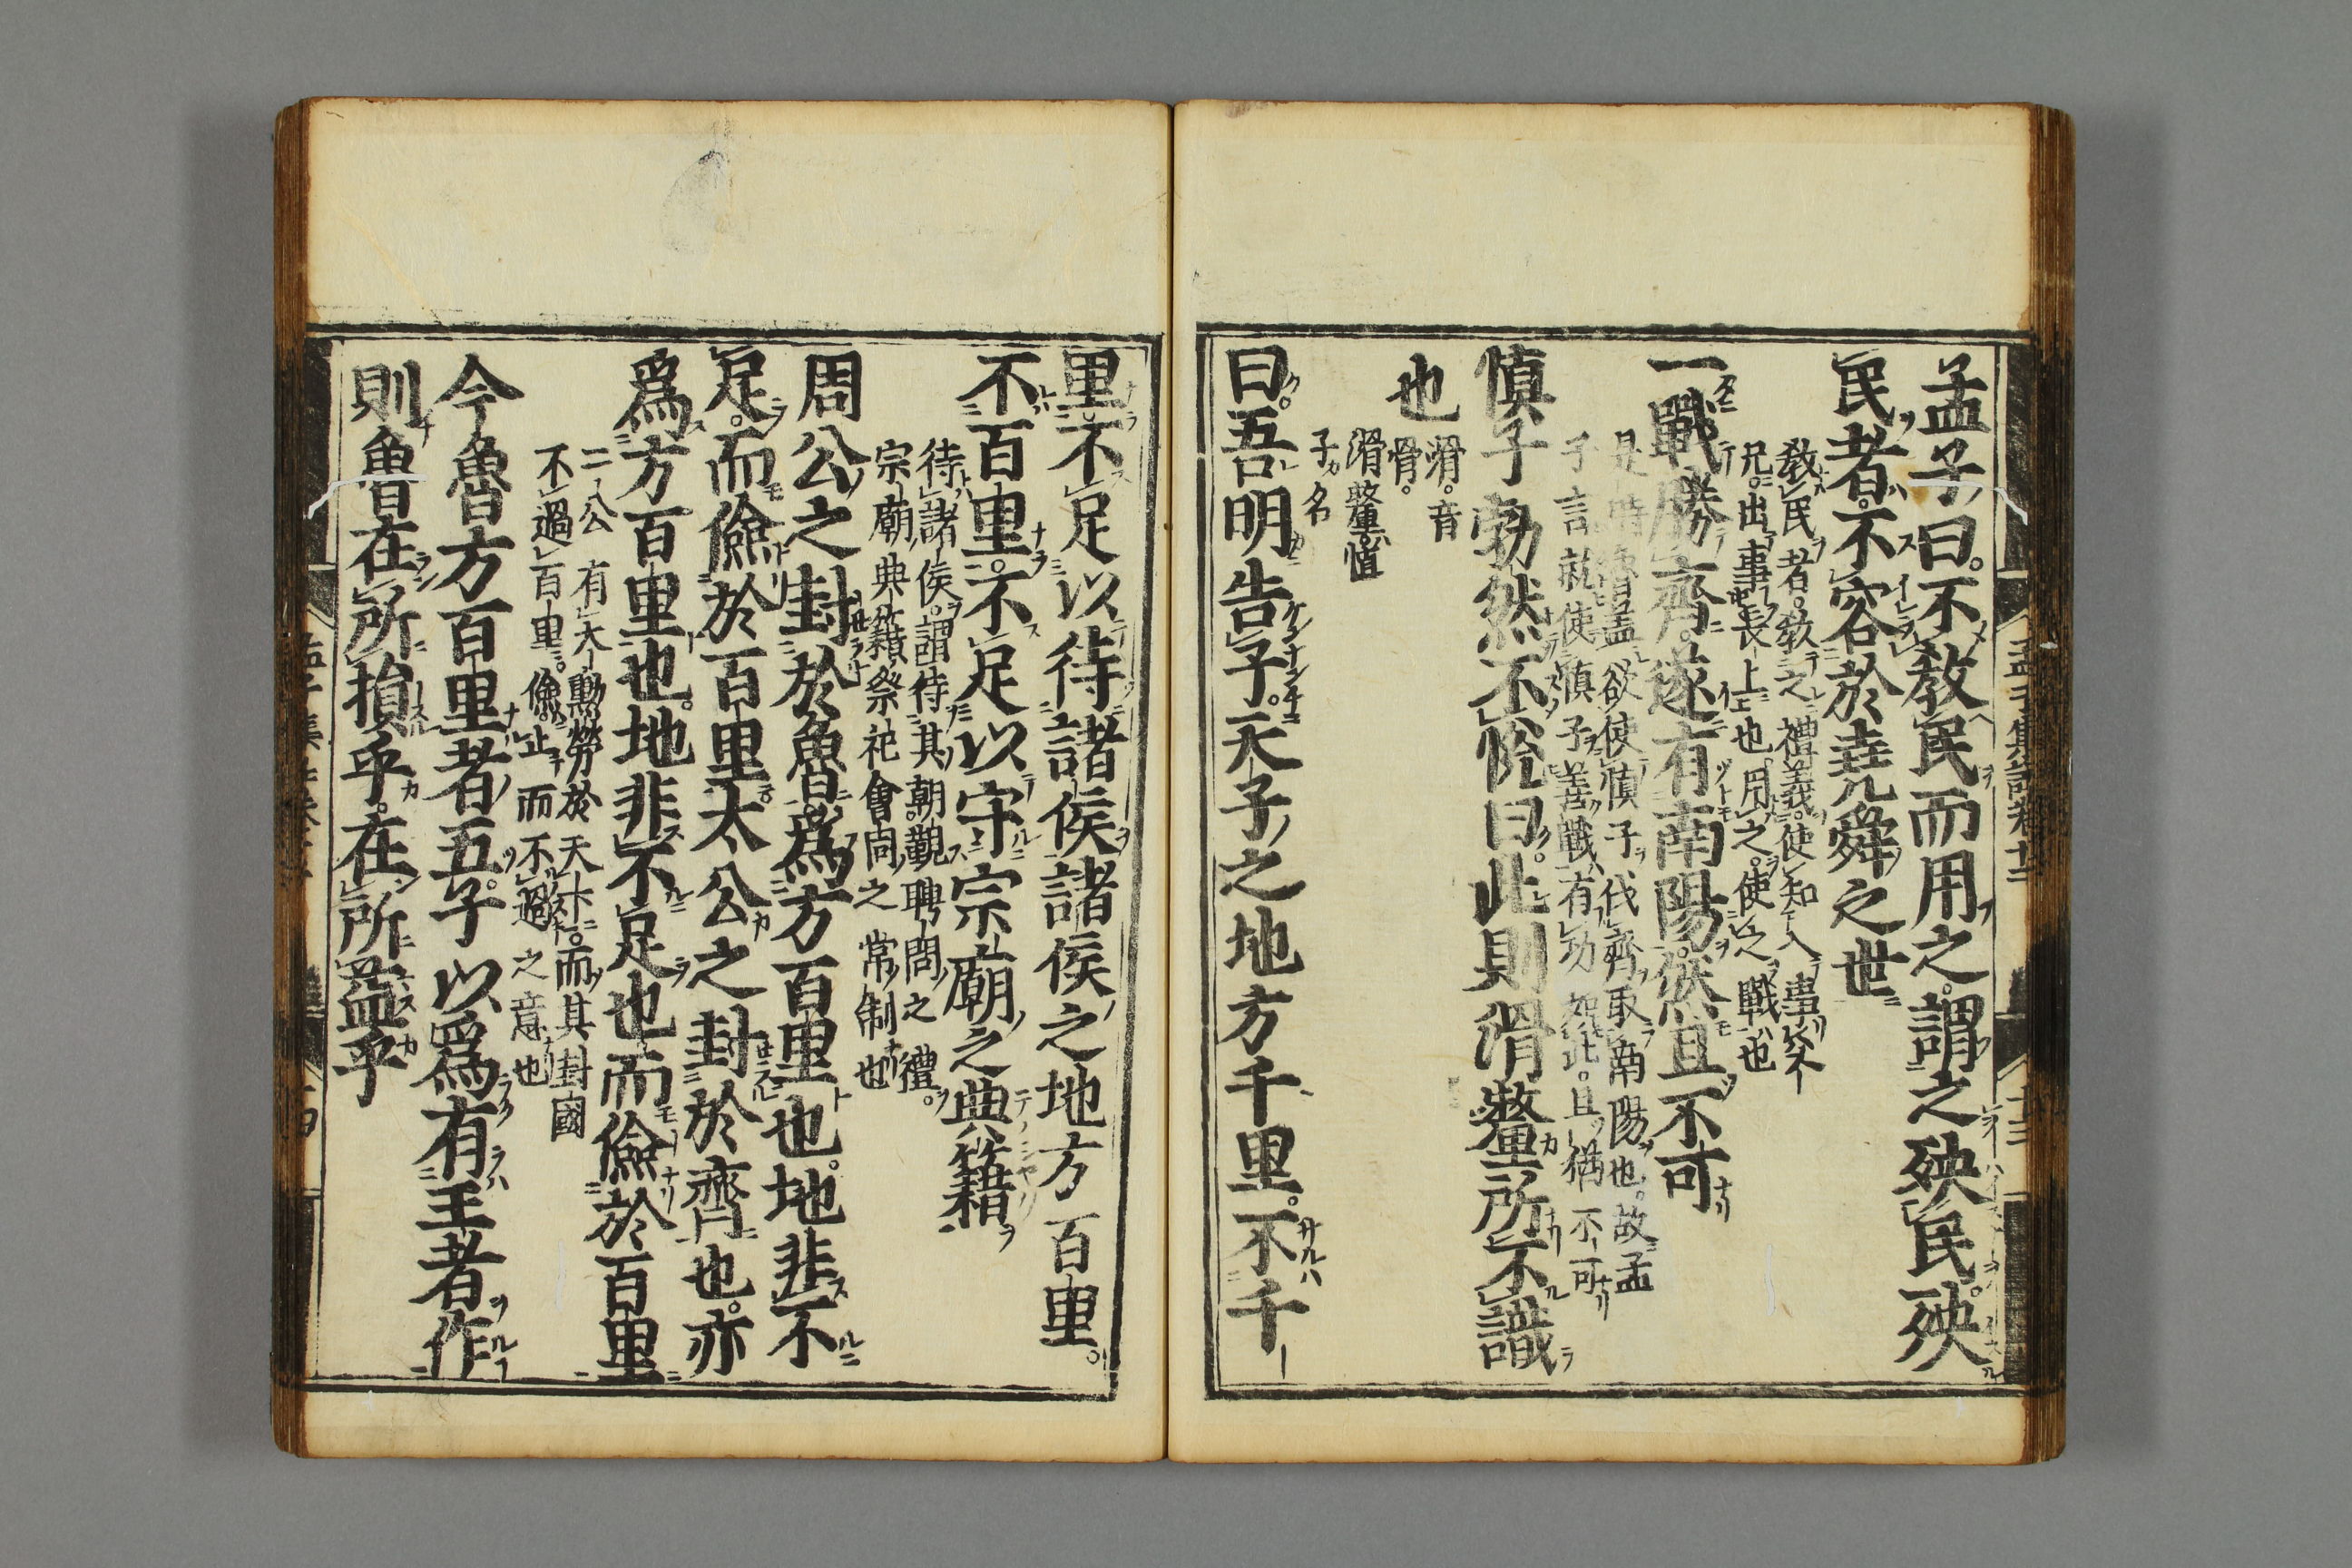 孟子曰。不敎民而用之。謂之殃民。殃
民者。不容於堯舜之世
敎民者。敎之禮義。使知入事父
兄。出事長上也。用之。使之戰也
一戰勝齊。遂有南陽。然且不可
是時魯蓋欲使愼子伐齊取南陽也。故孟
子言就使愼子善戰有功如此。且猶不可
愼子勃然不悅曰。此則滑釐所不識
也
滑。音
骨。
滑釐。愼
子名
曰。吾明告子。天子之地方千里。不千
里。不足以待諸侯。諸侯之地方百里。
不百里。不足以守宗廟之典籍
待諸侯。謂待其朝覲聘問之禮。
宗廟典籍。祭祀會同之常制也
周公之封於魯。爲方百里也。地非不
足。而儉於百里。太公之封於齊也。亦
爲方百里也。地非不足也。而儉於百里
二公有大勳勞於天下。而其封國
不過百里。儉。止而不過之意也
今魯方百里者五。子以爲有王者作
則魯在所損乎。在所益乎